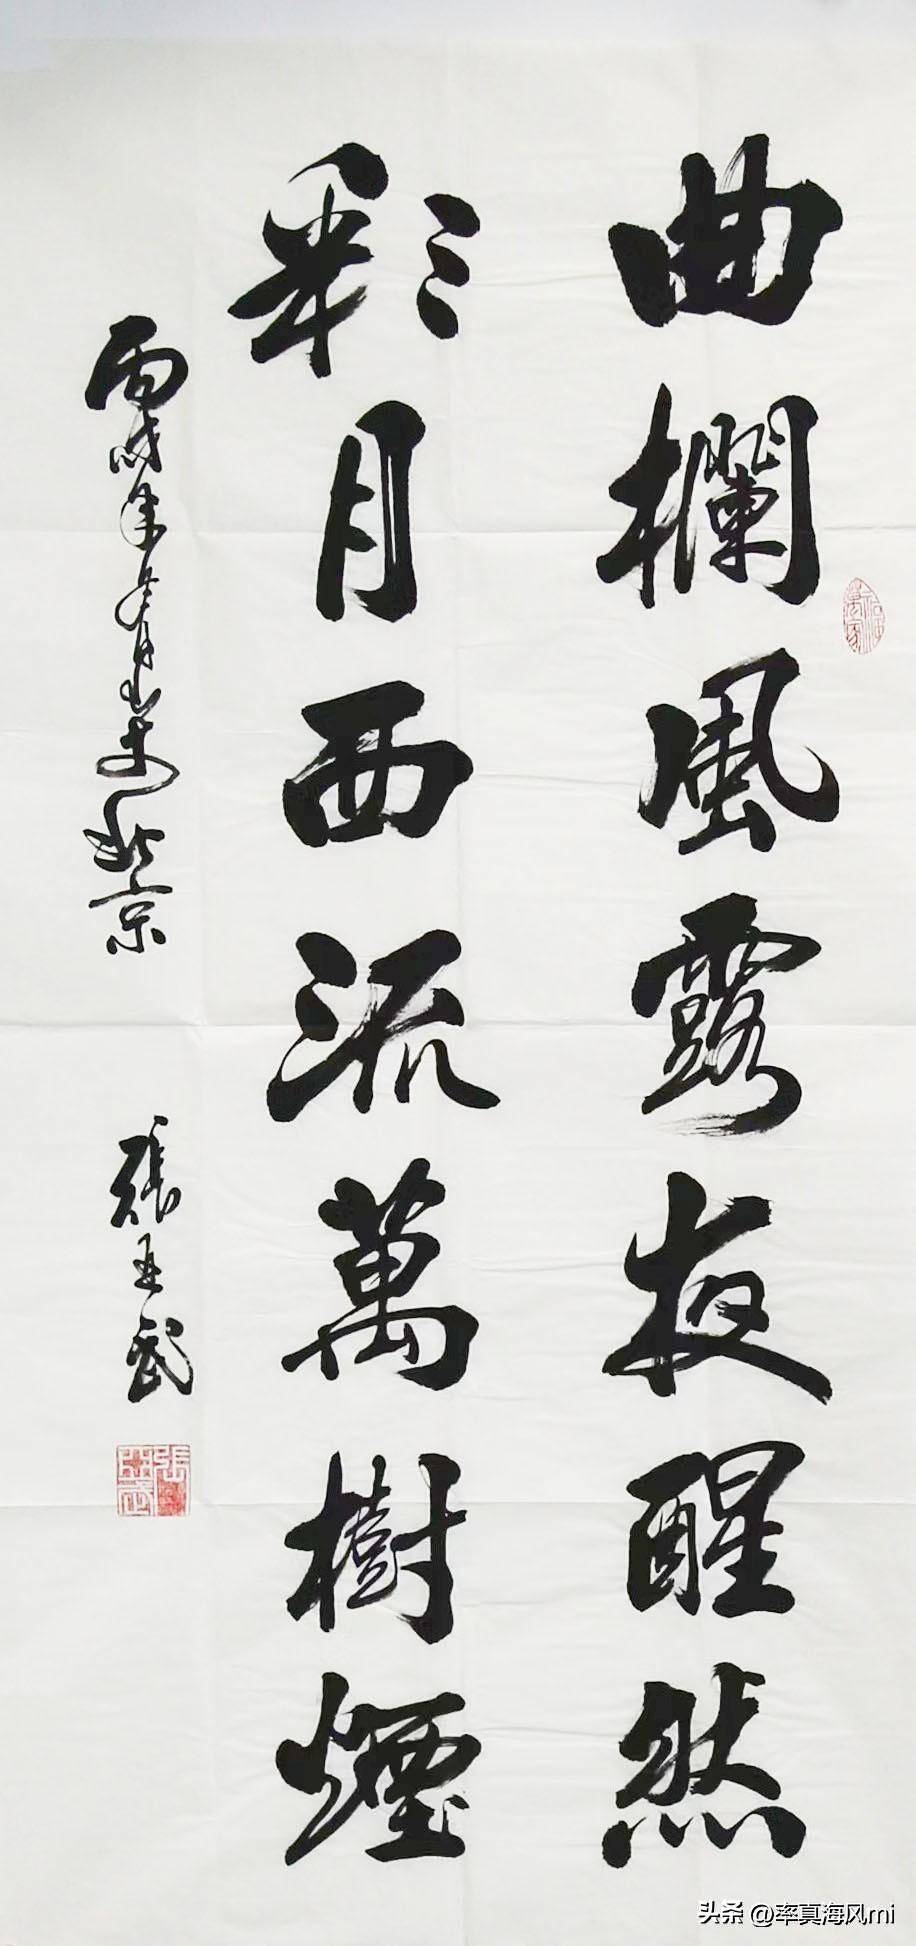 曲欄風露夜醒然
彩月西流萬樹煙
丙戌年月书於北京
張亞武
張亞武
头条 @率真海风mi